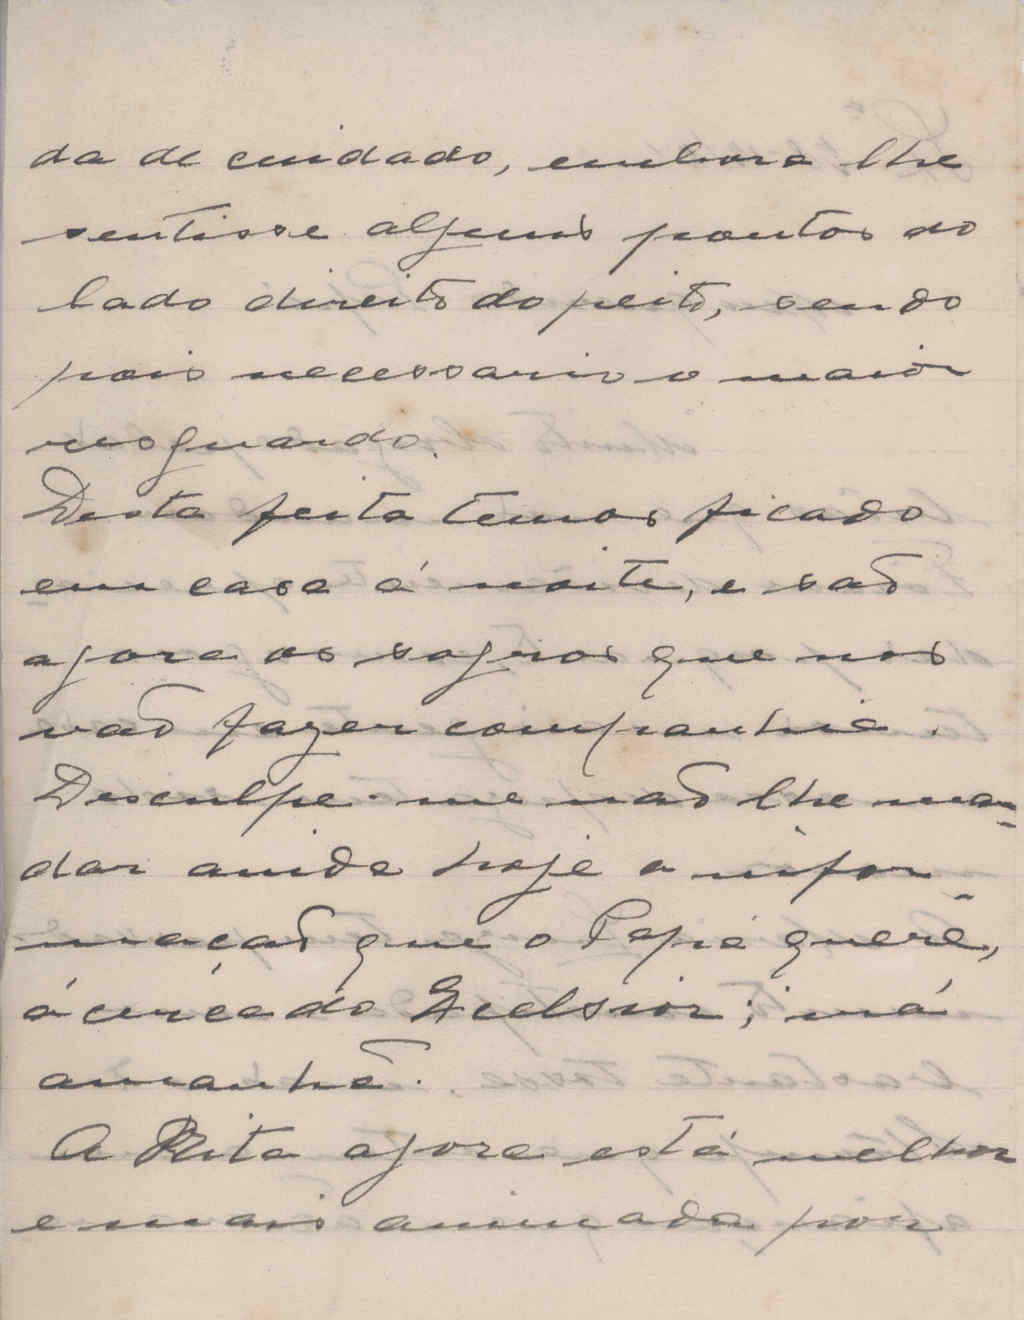 da de cuidado, embora lhe
sentisse alguns pontos do
lado direito do peito, sendo
pois necessario o maior
resguardo.
Desta feita temos ficado
em casa á noite, e são
agora os sogros que nos
vão fazer companhia.
Desculpe-me não lhe man-
dar ainda hoje a infor-
mação que o Papá quere,
ácerca do Excelsior; irá
amanhã.
A Rita agora está melhor
e mais animada, por